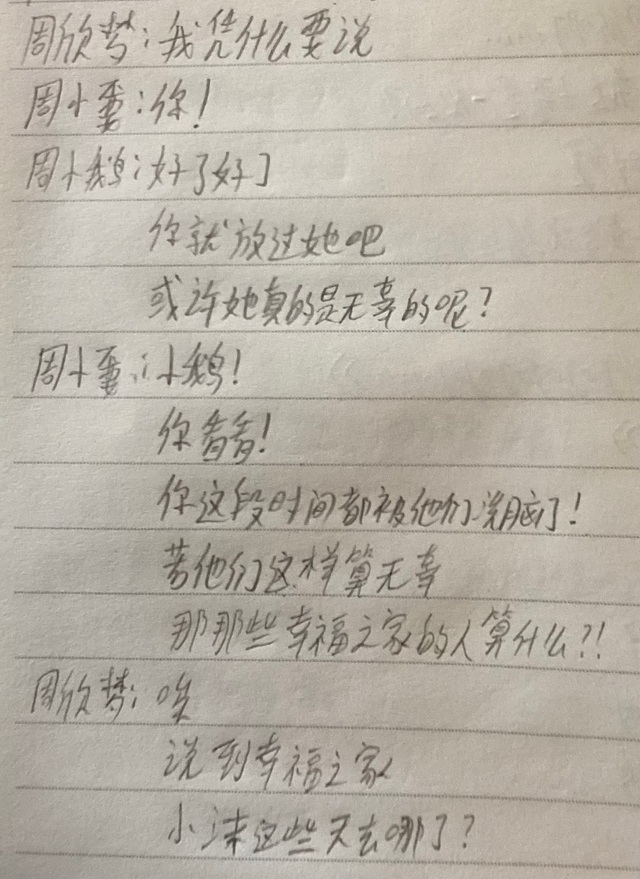 周欣梦：我凭什么要说
周小要：你！
周小鹅：好了好了
你就放过她吧
或许她真的是无辜的呢？
周小要：小鹅！
你看看！
你这段时间都被他们洗脑了！
若他们这样算无辜
那那些幸福之家的人算什么？！
周欣梦：唉
说到幸福之家
小沫这些天去哪了？